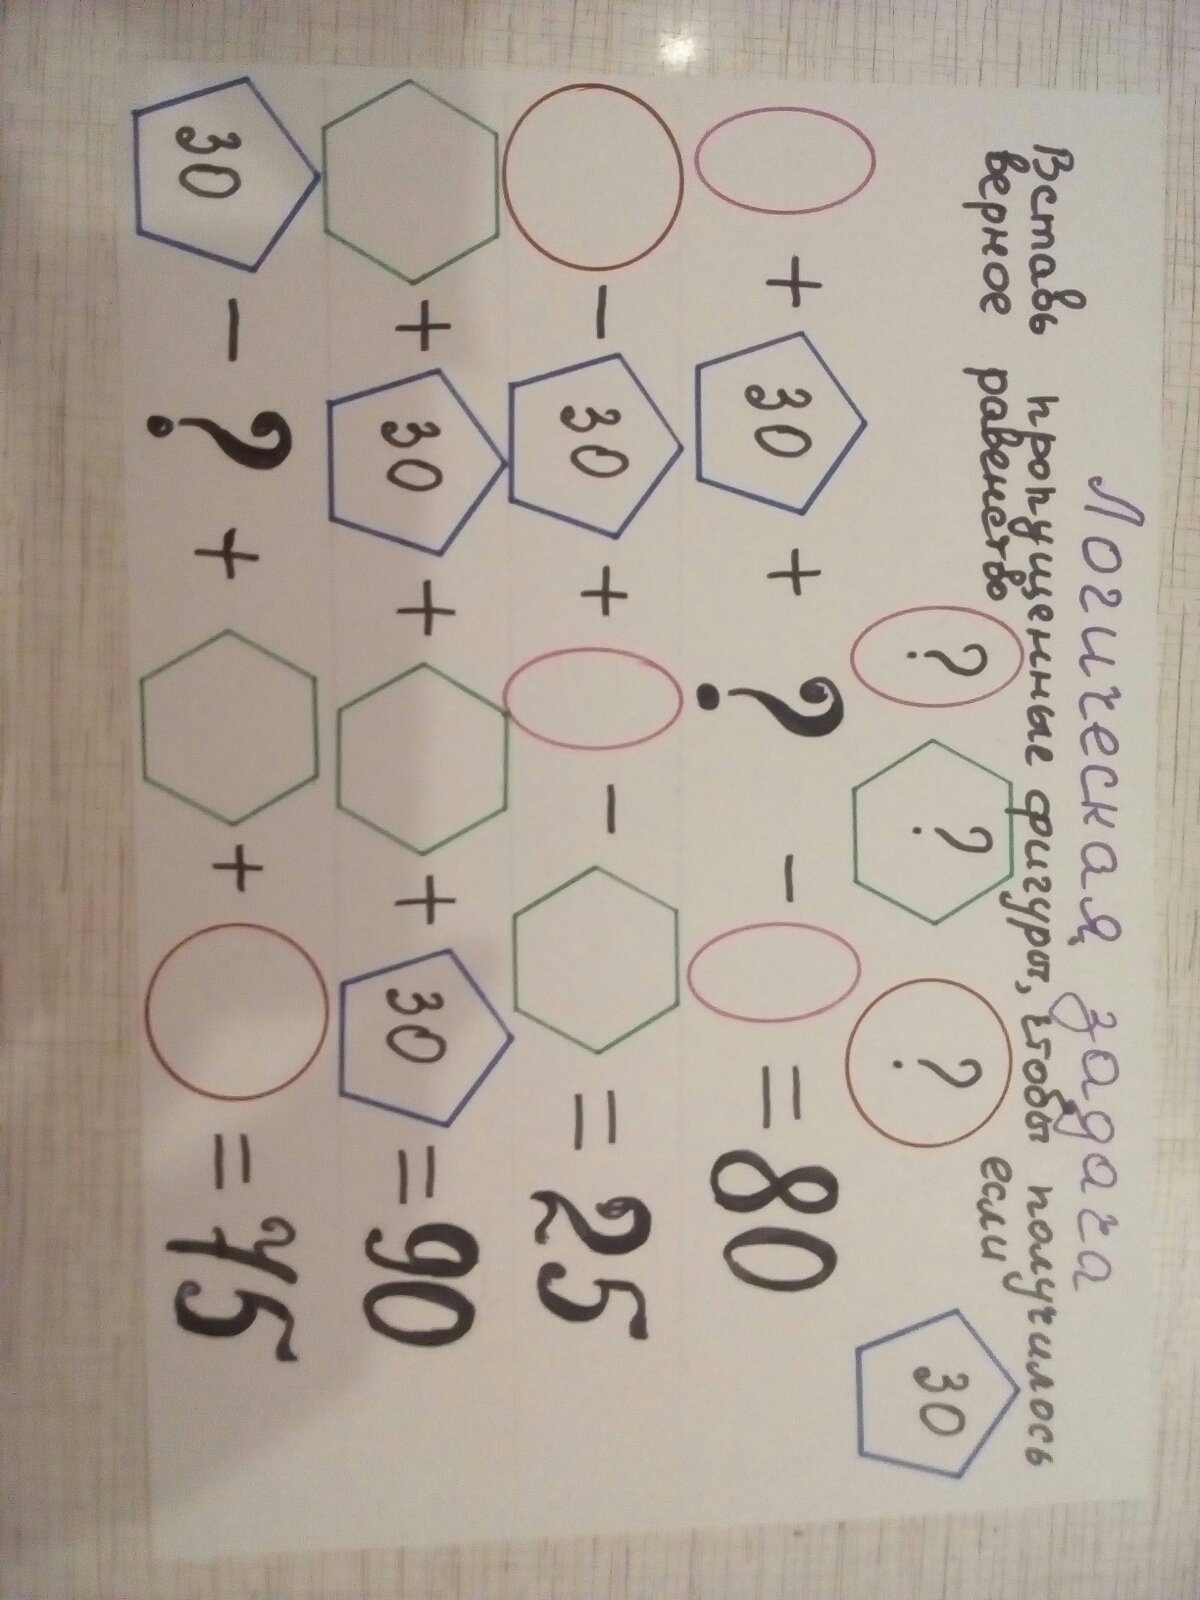 Логическая задача
Вставь пропущенные фигуры, чтобы получилось
верное равенство если
? ? ? 30
+ 30 + ? - = 80
- 30 + - = 25
+ 30 + + 30 = 90
30 - ? + + = 75